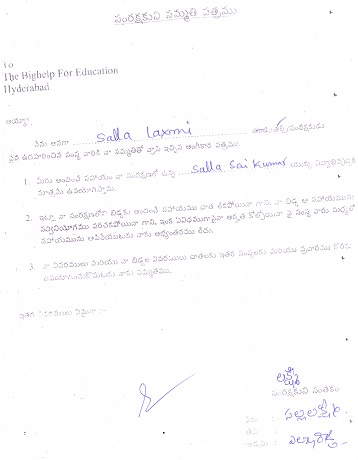 సంరక్షకుని సమ్మతి పత్రము
To
The Bighelp For Education
Hyderabad.
అయ్యా
నేను అనగా Salla Laxmi తండ్రి/తల్లి/సంరక్షకుడు
పైన ఉదహరించిన సంస్థ వారికి నా సమ్మతితో వ్రాసి ఇచ్చిన అంగీకార పత్రము.
1. మీరు అందించే సహాయం నా సంరక్షణలో ఉన్న Salla Sai Kumar యొక్క విద్యాభివృద్ధికి
మాత్రమే ఉపయోగిస్తాను.
2. ఇట్లు నా సంరక్షణలోని బిడ్డకు అందించే సహాయము దాత లేకపోయినా గాని, నా బిడ్డ ఆ సహాయమును
సద్వినియోగము పరచకపోయినా గాని, ఇంక ఏవిధముగానైనా అర్హత కోల్పోయినా పై సంస్థ వారు మధ్యలో
సహాయమును ఆపివేయుటకు నాకు అభ్యంతరము లేదు.
3. నా వివరములు మరియు నా బిడ్డల వివరములు దాతలకు ఇతర సంస్థలకు మరియు ప్రచారము కొరకు
ఉపయోగించుకొనుటకు నాకు సమ్మతము.
ఇతర వివరములు ఏమైనా :-
లక్ష్మి
సంరక్షకుని సంతకం
పేరు : సల్ల లక్ష్మి
తేది :